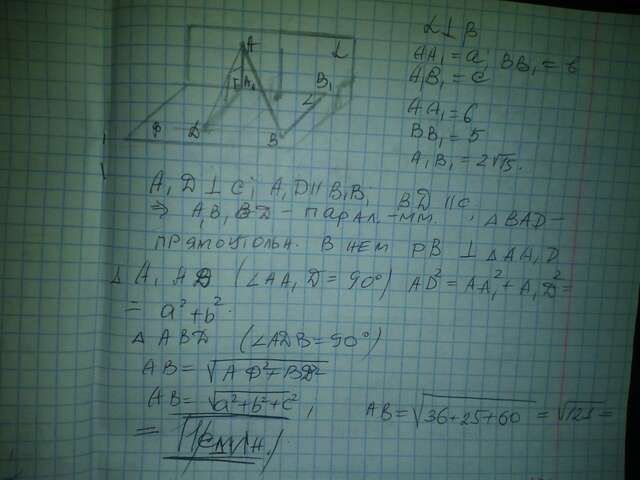 A
L
A₁
B₁
D
B
α ⊥ β
AA₁ = a; BB₁ = в
A₁B₁ = c
AA₁ = 6
BB₁ = 5
A₁B₁ = 2√15.
A₁D ⊥ c; A₁D ∥ B₁B; BD ∥ c
⇒ A₁B₁BD – парал,-мм. ΔBAD –
прямоуголн. В нем BD ⊥ ΔAA₁D
ΔA₁AD (∠AA₁D = 90°) AD² = AA₁² + A₁D² =
= a² + b².
ΔABD (∠ADB = 90°)
AB = √AD² + BD²
AB = √a² + b² + c²; AB = √36 + 25 + 60 = √121 =
=